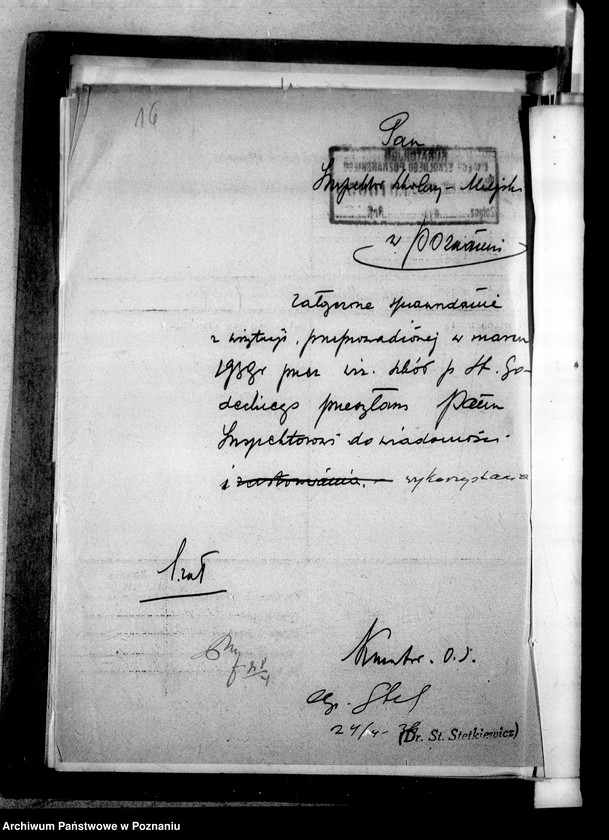 16
Pan
Inspektor szkolny - Miejski
w Poznaniu
Załączone sprawozdanie
z wizytacji, przeprowadzonej w marcu
1938r przez wiz. szkół p. St. Go-
deckiego przesyłam Panu
Inspektorowi do wiadomości
i wykorzystania
1 zał
Kurator. O. S.
24/4 - 38
(Dr. St. Stetkiewicz)
Archiwum Państwowe w Poznaniu